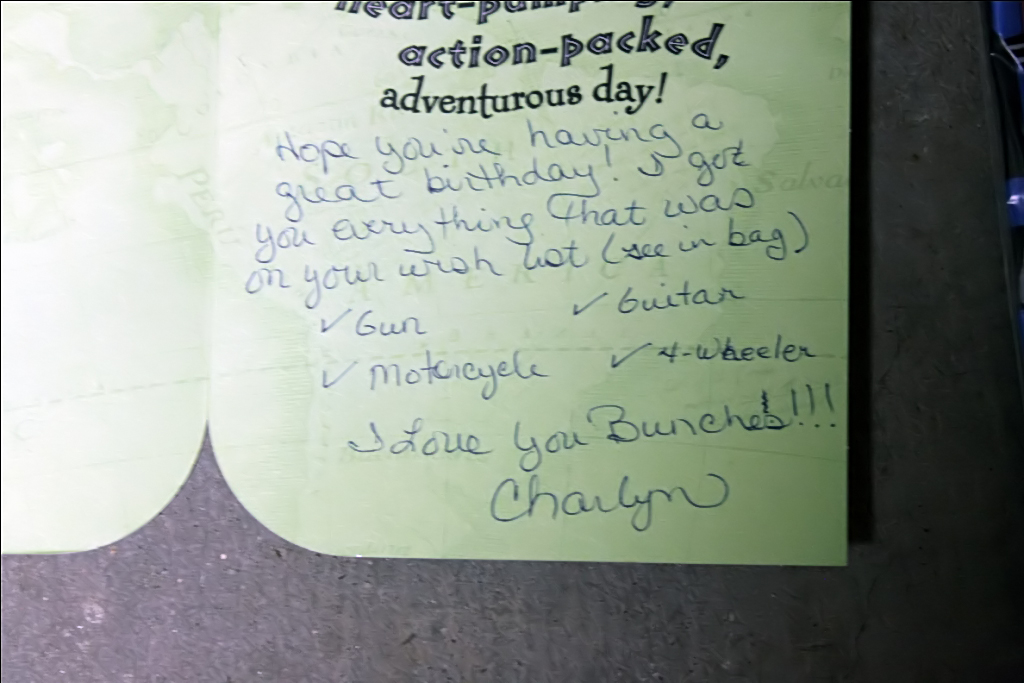 heart-pumping,
action-packed,
adventurous day!
Hope you're having a
great birthday! I got
you everything that was
on your wish list (see in bag)
✓ Gun ✓ Guitar
✓ Motorcycle ✓ 4-Wheeler
I Love You Bunches!!!
Charlyn
PERU
Salva